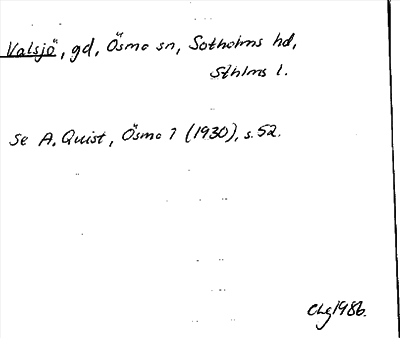 Valsjö, gd, Ösmo sn, Sotholms hd,
Sthlms l.
Se A. Quist, Ösmo 1 (1930), s. 52.
CLg 1986.